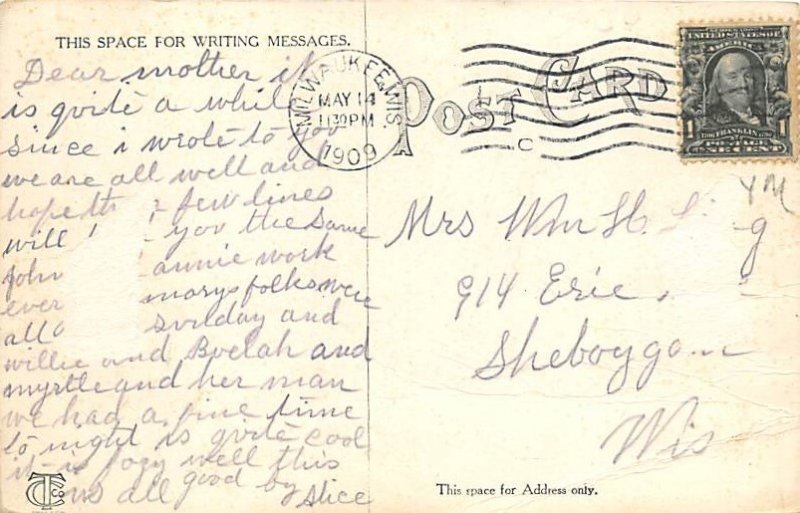 THIS SPACE FOR WRITING MESSAGES.
Dear mother it
is quite a while
since i wrote to you
we are all well and
hope few lines
will you the same
John annie work
ever marys folks were
all sunday and
willie and Buelah and
myrtle and her man
we had a fine time
to night is quite cool
it is fozy well this
is all good by Alice
MILWAUKEE, WIS
MAY 14
1130 PM
1909
C
POST CARD
UNITED STATES OF
AMERICA
1 FRANKLIN 1
POSTAGE
YM
Mrs Wm H.
914 Erie
Sheboygan
Wis
This space for Address only.